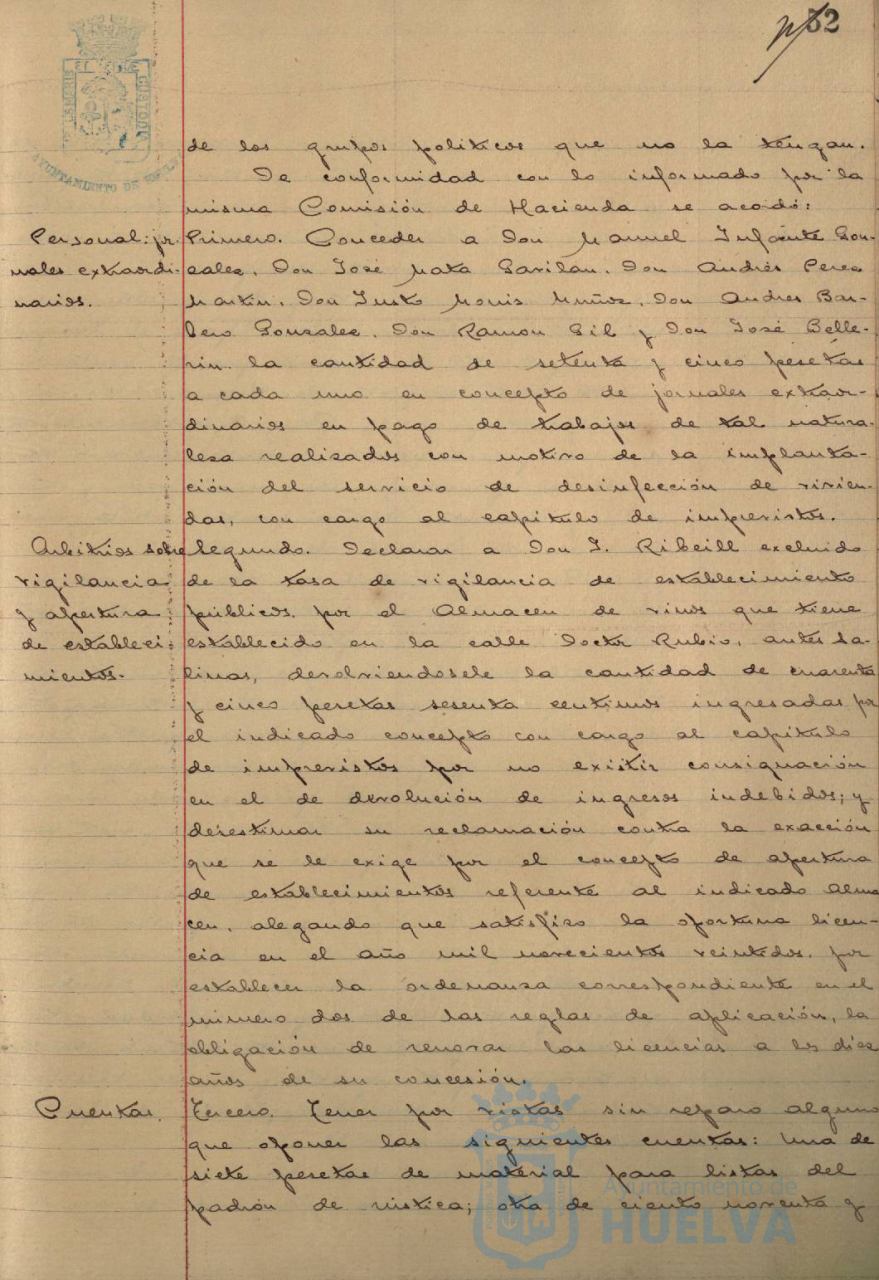 52
AYUNTAMIENTO DE HUELVA
de los grupos politicos que no la tengan.
De conformidad con lo informado por la
misma Comisión de Hacienda se acordó:
Personal: jor
nales extraordi-
narios.
Primero. Conceder a Don Manuel Infante Gon-
zalez, Don José Mata Gavilan, Don Andrés Perez
Martin, Don Justo Monis Muñoz, Don Andres Bar-
bero Gonzalez, Don Ramon Gil y Don José Belle-
rin la cantidad de setenta y cinco pesetas
a cada uno en concepto de jornales extraor-
dinarios en pago de trabajos de tal natura-
leza realizados con motivo de la implanta-
ción del servicio de desinfección de vivien-
das, con cargo al capitulo de imprevistos.
Arbitrios sobre
vigilancia
y apertura
de estableci-
mientos.
Segundo. Declarar a Don J. Ribeill excluido
de la tasa de vigilancia de establecimiento
públicos, por el Almacen de vinos que tiene
establecido en la calle Doctor Rubio, antes Sa-
linas, devolviendosele la cantidad de cuarenta
y cinco pesetas sesenta centimos ingresadas por
el indicado concepto con cargo al capitulo
de imprevistos por no existir consignación
en el de devolución de ingresos indebidos; y
desestimar su reclamación contra la exacción
que se le exige por el concepto de apertura
de establecimientos referente al indicado alma
cen, alegando que satisfizo la oportuna licen-
cia en el año mil novecientos veintidos, por
establecer la ordenanza correspondiente en el
número dos de las reglas de aplicación, la
obligación de renovar las licencias a los diez
años de su concesión.
Cuentas.
Tercero. Tener por vistas sin reparo alguno
que oponer las siguientes cuentas: Una de
siete pesetas de material para listas del
padrón de rústica; otra de ciento noventa y
Ayuntamiento de
HUELVA